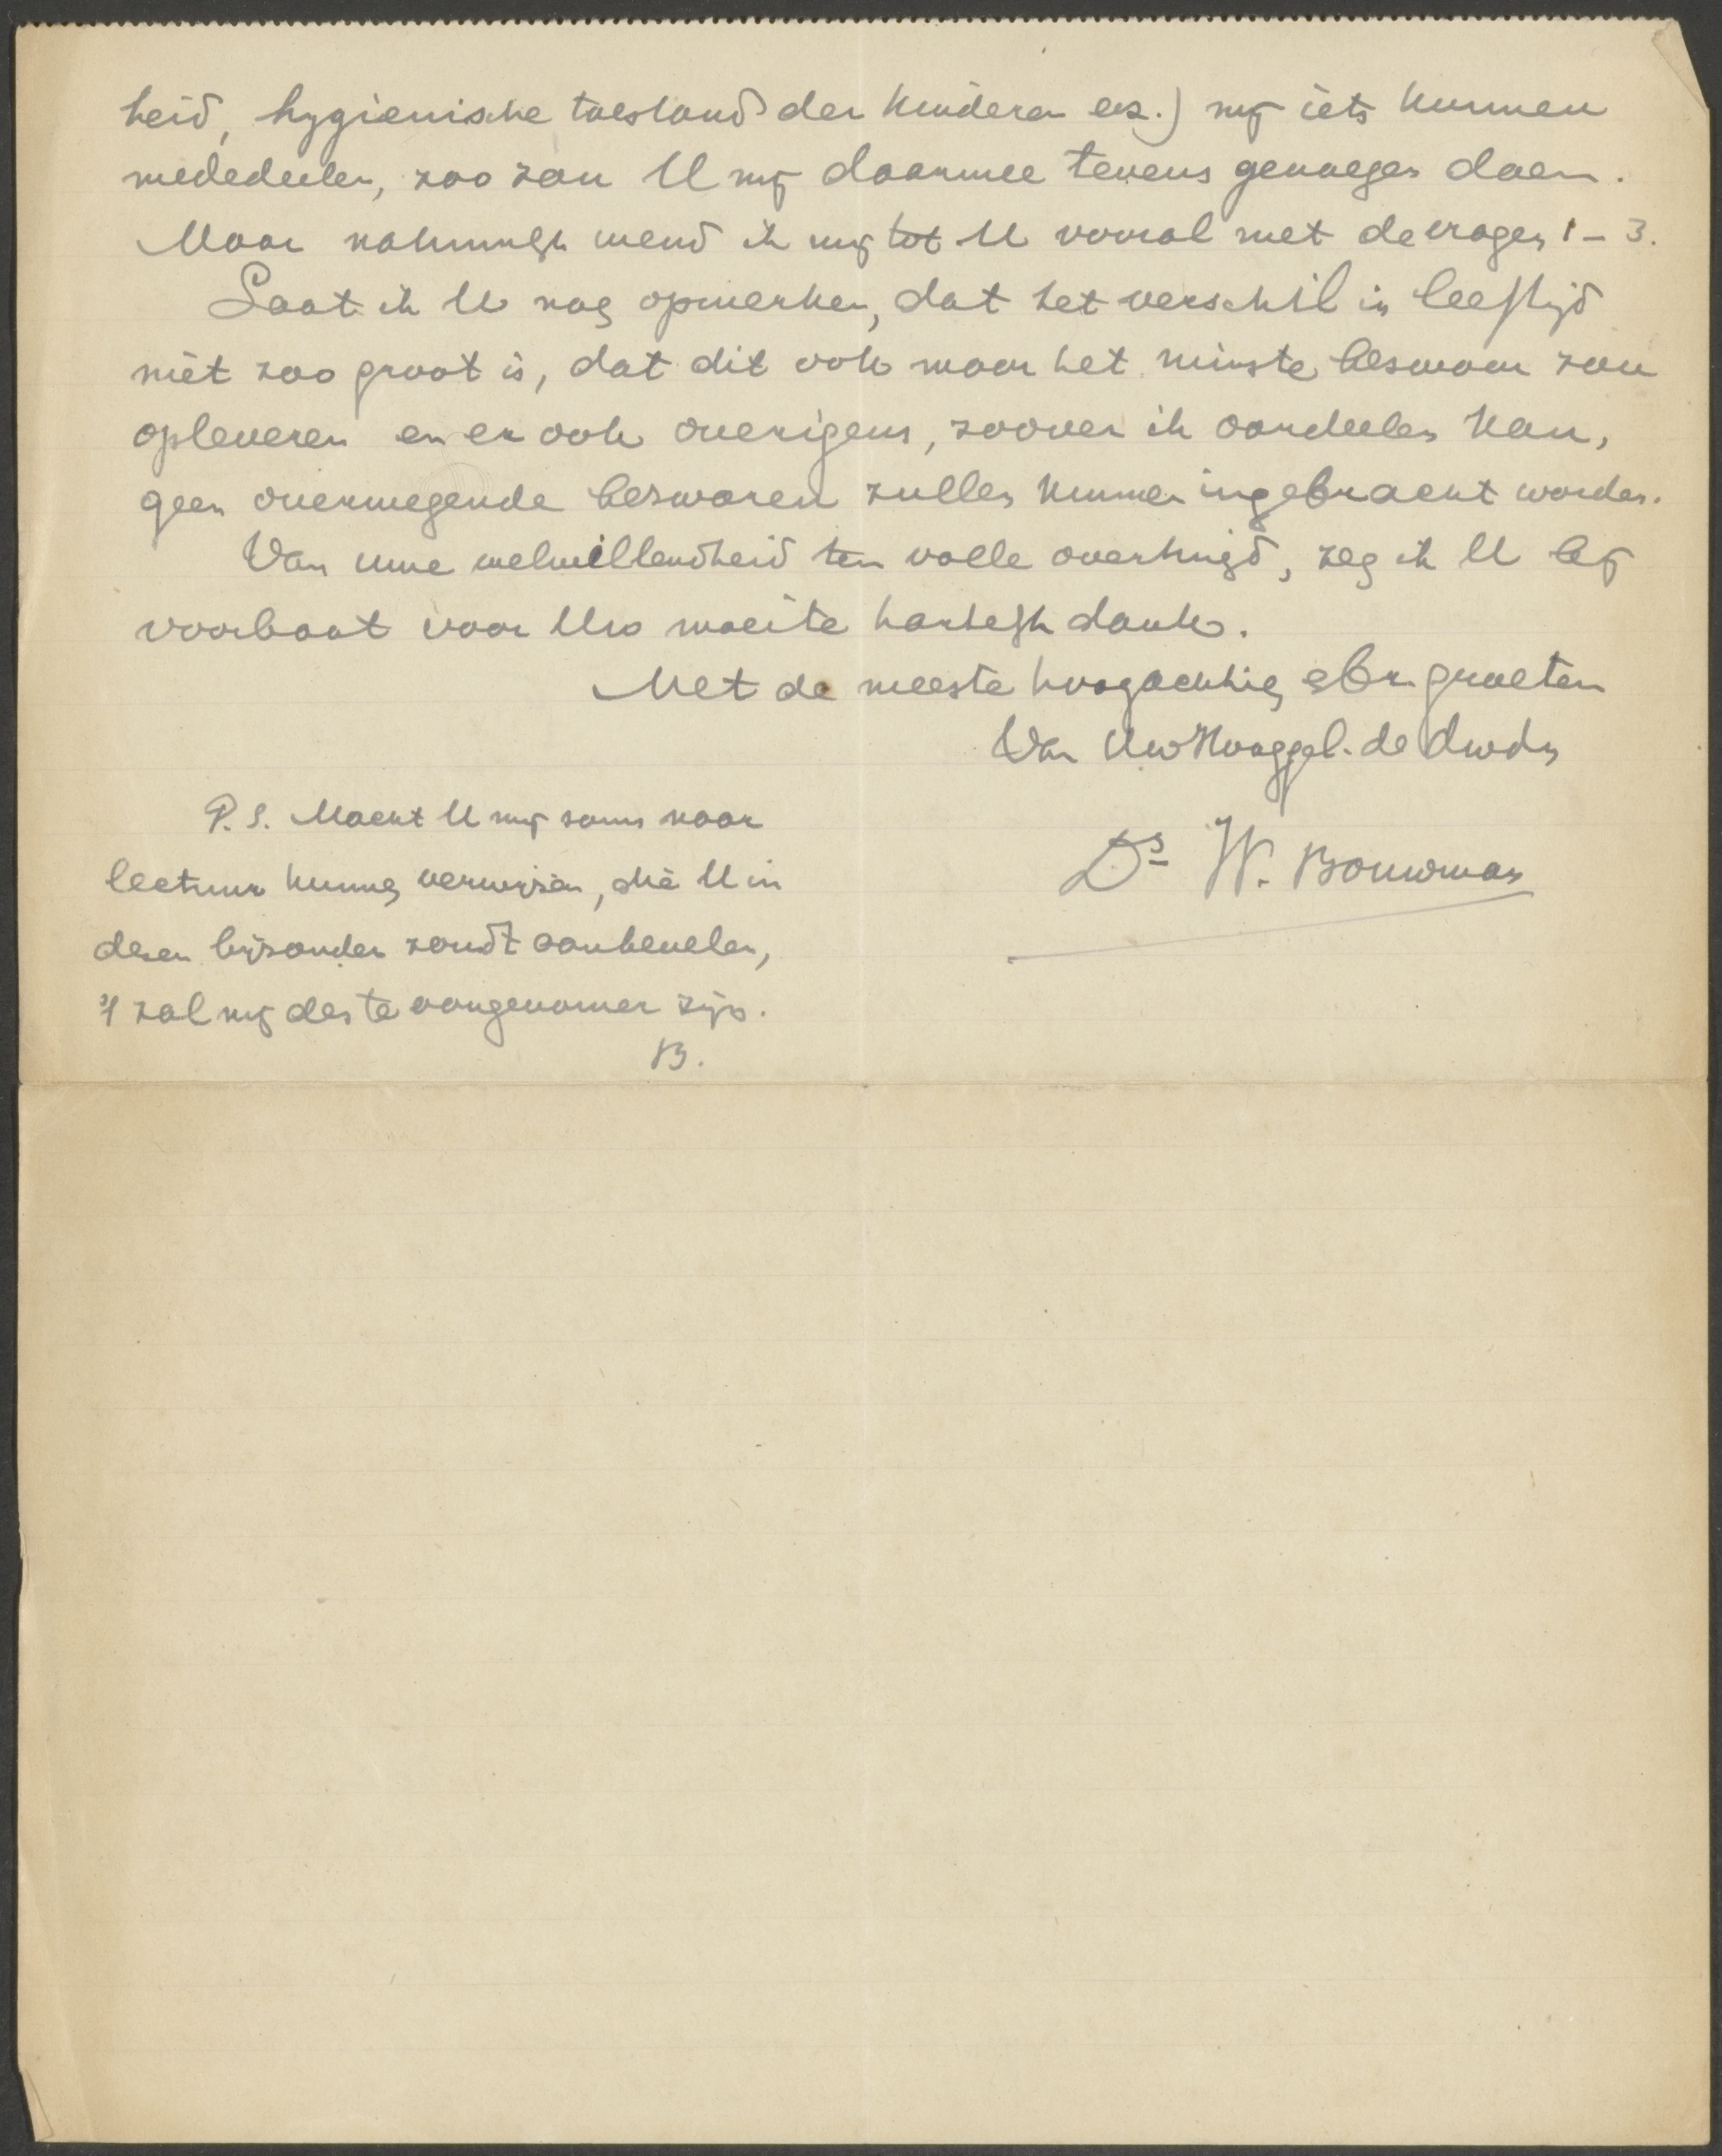 heid, hygienische toestand der kinderen enz.) mij iets kunnen
mededeelen, zoo zou U mij daarmee tevens genoegen doen.
Maar natuurlijk wend ik mij tot U vooral met de vragen 1 – 3.
Laat ik U nog opmerken, dat het verschil in leeftijd
niet zoo groot is, dat dit ook maar het minste beswaar zou
opleveren en er ook overigens, zoover ik oordeelen kan,
geen overwegende beswaren zullen kunnen ingebracht worden.
Van Uwe welwillendheid ten volle overtuigd, zeg ik U bij
voorbaat voor Uw moeite hartelijk dank.
Met de meeste hoogachting & br. groeten
Van Uw Hooggel. de dwdn
Ds W. Bouwman
P.S. Mocht U mij soms naar
lectuur kunnen verwijzen, die U in
dezen bijzonder zoudt aanbevelen,
't zal mij des te aangenamer zijn.
B.